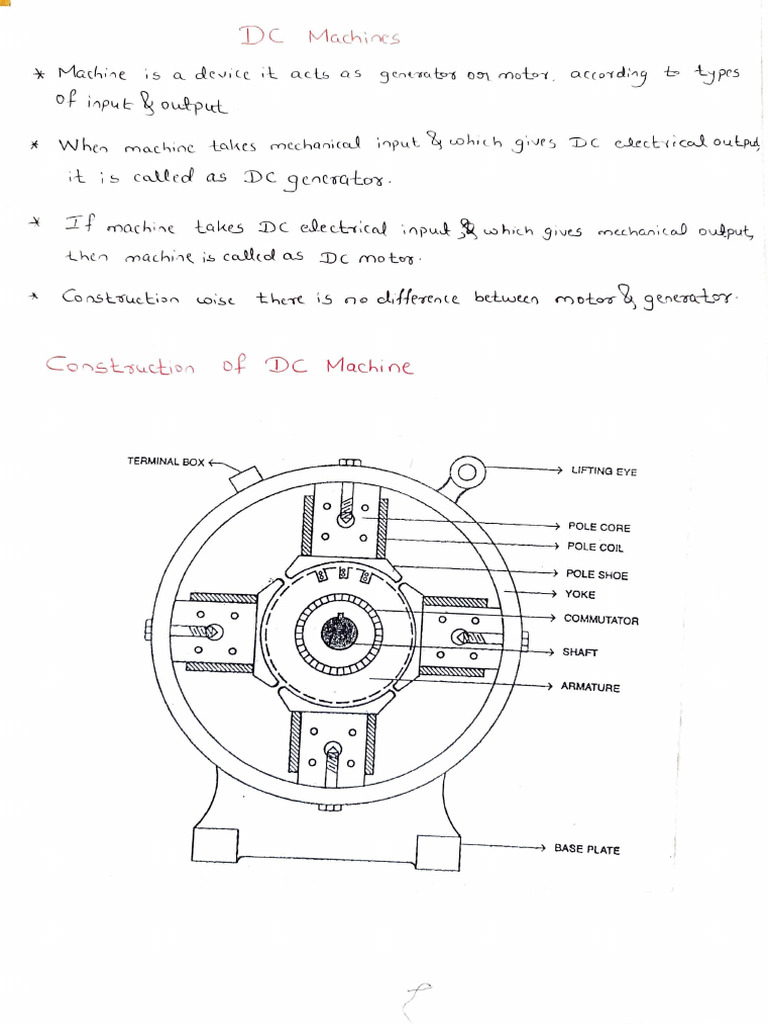 DC Machines
* Machine is a device it acts as generator or motor. according to types
of input & output
* When machine takes mechanical input & which gives DC electrical output,
it is called as DC generator.
* If machine takes DC electrical input, & which gives mechanical output,
then machine is called as DC motor.
* Construction wise there is no difference between motor & generator.
Construction of DC Machine
TERMINAL BOX
LIFTING EYE
POLE CORE
POLE COIL
POLE SHOE
YOKE
COMMUTATOR
SHAFT
ARMATURE
BASE PLATE